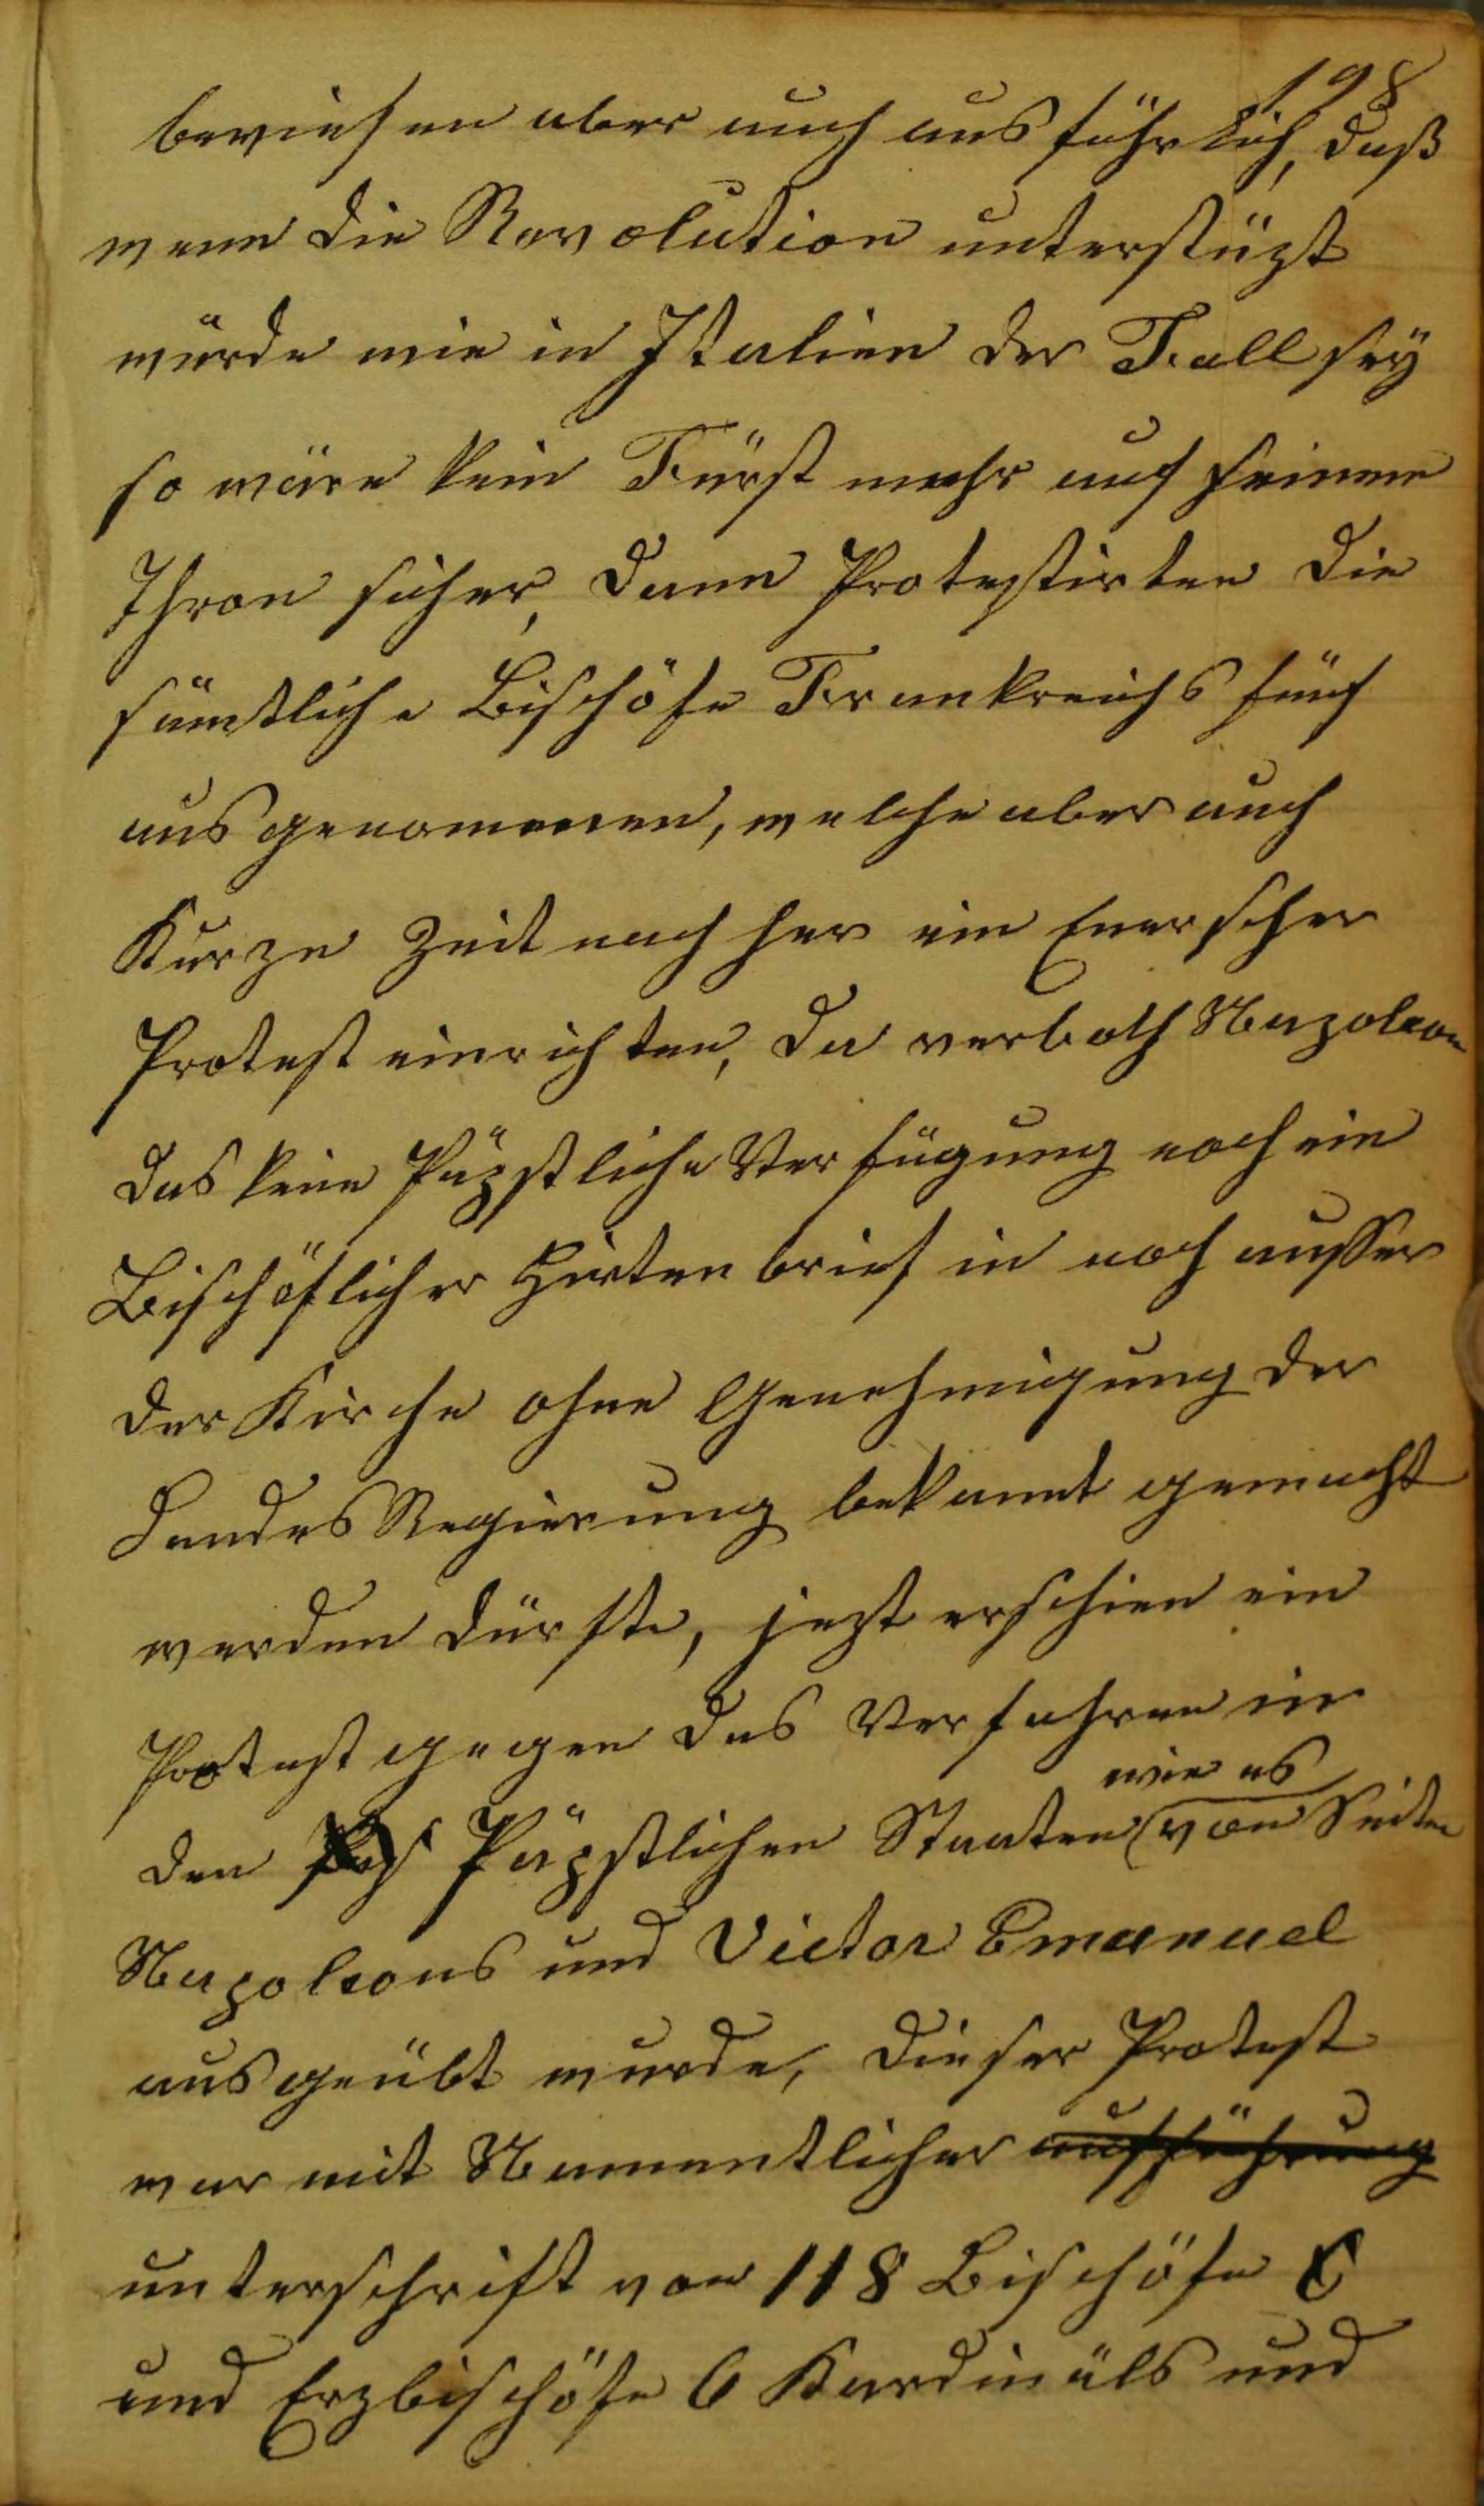 198
beviesen aber auch ausführlich, daß
wenn die Revolution unterstüzt
würde wie in Italien der Fall sey
so wäre kein Fürst mehr auf seinem
Thron sicher, dann Protestirten die
sämtliche Bischöfe Frankreichs fünf
ausgenommen, welche aber auch
Kurze Zeit nach her ein Enerscher
Protest einrichten, da verboth Napoleon
das keine Päpstliche Verfügung noch ein
Bischöflicher Hirtenbrief in noch ausser
der Kirche ohne Genehmigung der
Landes Regierung bekannt gemacht
werden dürfte, jezt erschien ein
Protest gegen das Verfahren in
wie es
den Päpstlichen Staaten von Seiten
Napoleons und Victor Emanuel
ausgeübt wurde, dieser Protest
war mit Namentlicher aufführung
unterschrift von 118 Bischöfe
und Erzbischöfe 6 Kardinäls und